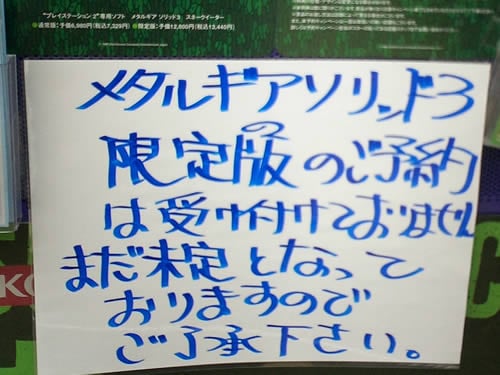 "プレイステーション 2"専用ソフト メタルギア ソリッド3 スネークイーター
●通常版：予価6,980円(税込7,329円) ●限定版：予価12,800円(税込13,440円)
メタルギアソリッド3
の
限定版のご予約
は受け付けておりません
まだ未定となって
おりますので
ご了承下さい。